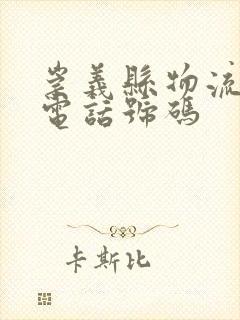 崇義縣物流
電話號碼
卡斯比